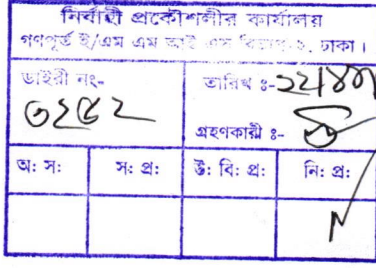 নির্বাহী প্রকৌশলীর কার্যালয়
গণপূর্ত ই/এম এম আই এস বিভাগ-২, ঢাকা।
ডাইরী নং-
তারিখ ঃ-
৩২৫২
গ্রহণকারী ঃ-
অ: স: স: প্র: উ: বি: প্র: নি: প্র: